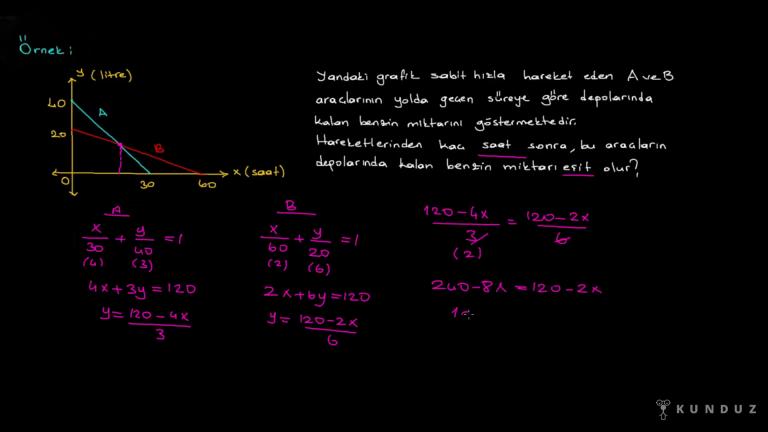 Örnek:
y (litre)
40
A
20
B
0
30
60
x (saat)
Yandaki grafik sabit hızla hareket eden A ve B
araçlarının yolda geçen süreye göre depolarında
kalan benzin miktarını göstermektedir.
Hareketlerinden kaç saat sonra, bu araçların
depolarında kalan benzin miktarı eşit olur?
A
x/30 + y/40 = 1
(4) (3)
4x+3y=120
y = 120-4x/3
B
x/60 + y/20 = 1
(2) (6)
2x+6y=120
y = 120-2x/6
120-4x/3 = 120-2x/6
(2)
240-8x=120-2x
KUNDUZ